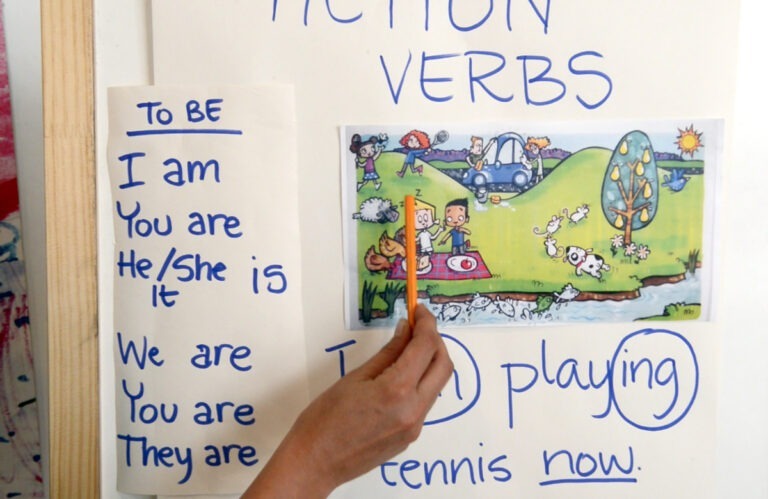 ACTION
VERBS
TO BE
I am
You are
He/She is
It
We are
You are
They are
I playing
tennis now.